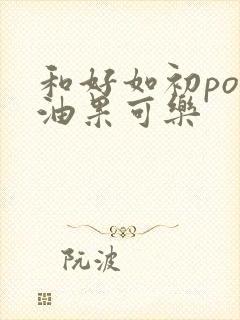 和好如初po
油果可樂
阮波